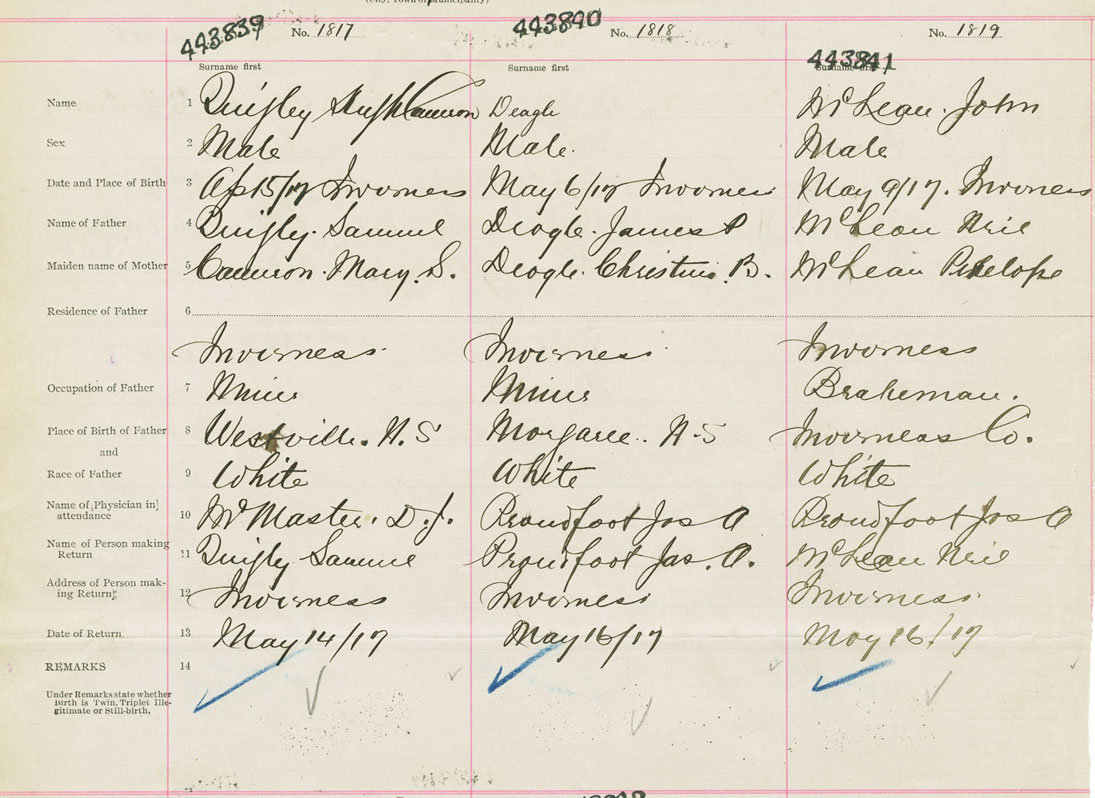 (City, Town or Municipality)
443839 No. 1817 443840 No. 1818 443841 No. 1819
Surname first Surname first Surname first
Name 1 Quigley Hugh Cameron Deagle McLean. John
Sex 2 Male Male. Male
Date and Place of Birth 3 Ap 15/17 Inverness May 6/17 Inverness May 9/17. Inverness
Name of Father 4 Quigley. Samuel Deagle. James P McLean Neil
Maiden name of Mother 5 Cameron. Mary. S. Deagle. Christine. B. McLean Penelope
Residence of Father 6
Inverness Inverness Inverness
Occupation of Father 7 Miner Miner Brakeman.
Place of Birth of Father 8 Westville. N.S Margaree.. N.S Inverness Co.
and
Race of Father 9 White White White
Name of Physician in
attendance 10 McMaster. D.J. Proudfoot Jas A Proudfoot Jas A
Name of Person making
Return 11 Quigley Samuel Proudfoot Jas. A. McLean Neil
Address of Person mak-
ing Return 12 Inverness Inverness Inverness
Date of Return 13 May 14/17 May 16/17 May 16/17
REMARKS 14
Under Remarks state whether
Birth is Twin, Triplet Ille-
gitimate or Still-birth.